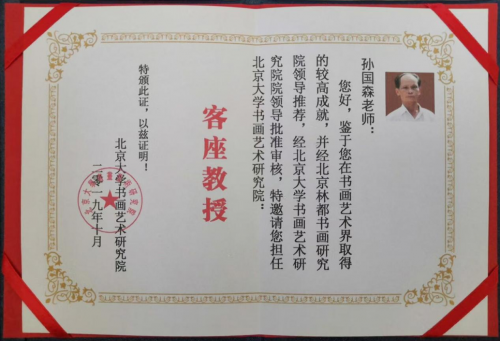 孙国森老师：
您好，鉴于您在书画艺术界取得
的较高成就，并经北京林都书画研究
院领导推荐，经北京大学书画艺术研
究院院领导批准审核，特邀请您担任
北京大学书画艺术研究院：
客座教授
特颁此证，以兹证明！
北京大学书画艺术研究院
二零一九年十月